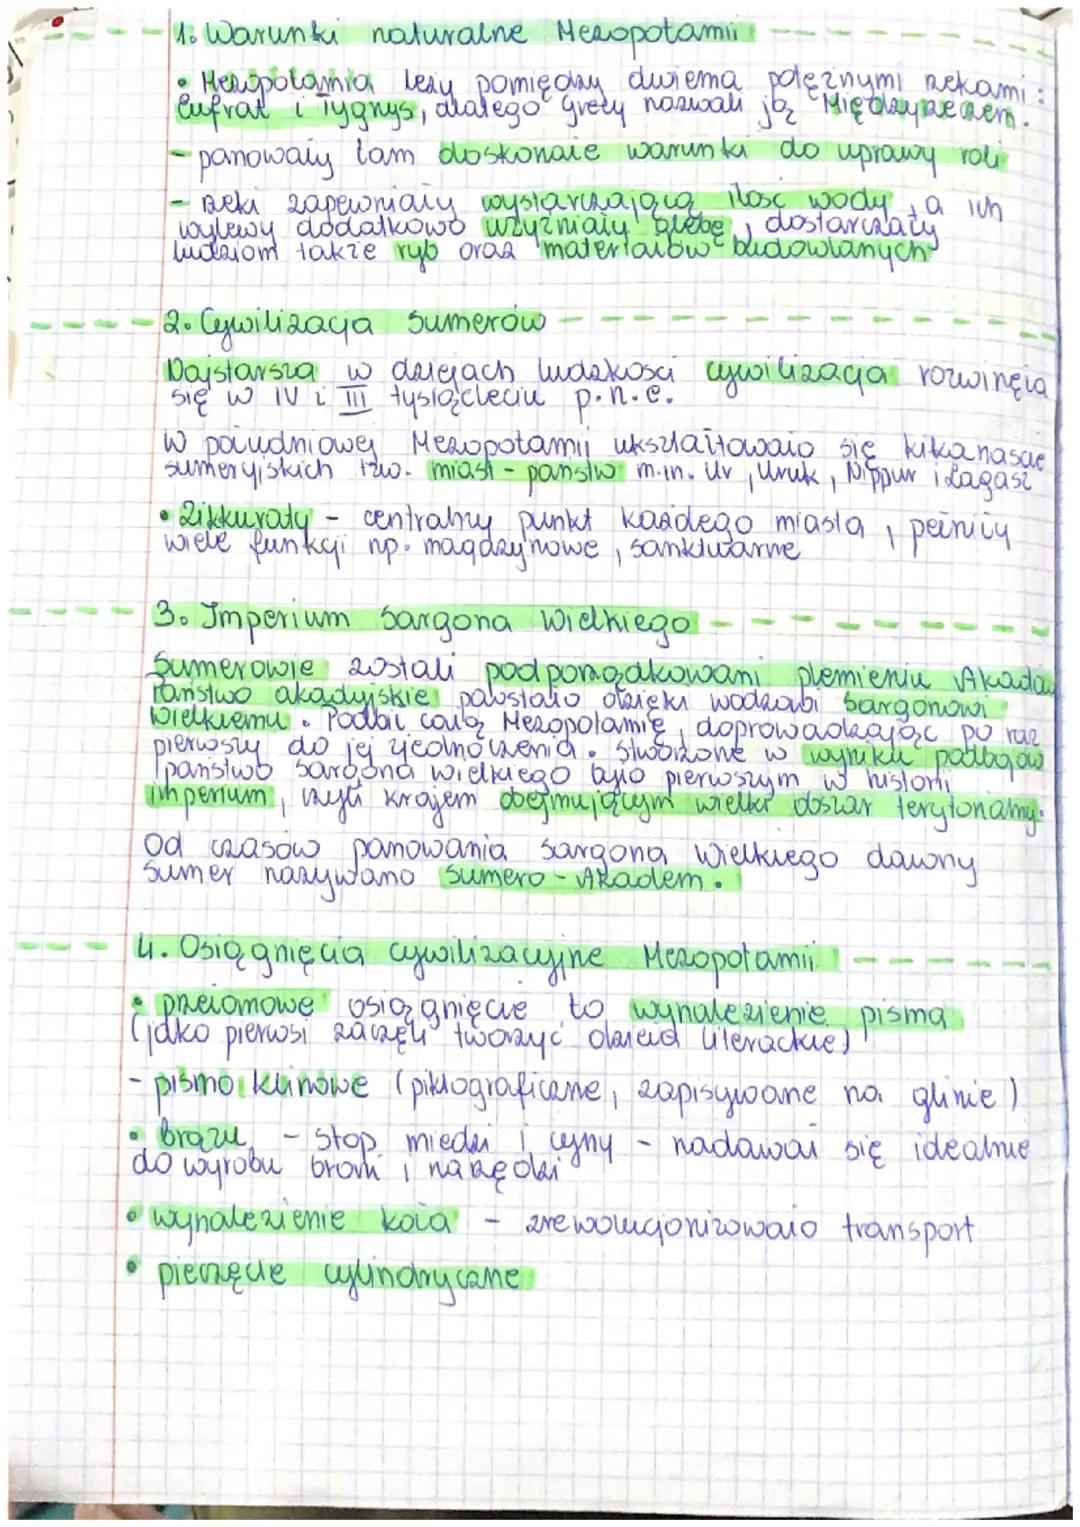 1. Warunki naturalne Mezopotamii
• Mezopotamia leży pomiędzy dwiema potężnymi rzekami:
Eufrat i Tygrys, dlatego grecy nazwali ją Międzyrzeczem.
- panowały tam doskonałe warunki do uprawy roli
- rzeki zapewniały wystarczającą ilość wody, a ich
wylewy dodatkowo użyźniały glebę, dostarczały
ludziom także ryb oraz materiałów budowlanych
2. Cywilizacja Sumerów
Najstarsza w dziejach ludzkości cywilizacja rozwinęła
się w IV i III tysiącleciu p.n.e.
W południowej Mezopotamii ukształtowało się kilkanaście
sumeryjskich tzw. miast-państw m.in. Ur, Uruk, Nippur i Lagasz
• Zikkuraty - centralny punkt każdego miasta, pełniły
wiele funkcji np. magazynowe, sanktuarne
3. Imperium Sargona Wielkiego
Sumerowie zostali podporządkowani plemieniu Akadów
Państwo akadyjskie powstało dzięki wodzowi Sargonowi
Wielkiemu. Podbił całą Mezopotamię, doprowadzając po raz
pierwszy do jej zjednoczenia. Stworzone w wyniku podbojów
państwo Sargona wielkiego było pierwszym w historii
imperium, czyli krajem obejmującym wielki obszar terytorialny.
Od czasów panowania Sargona Wielkiego dawny
Sumer nazywano Sumero-Akadem.
4. Osiągnięcia cywilizacyjne Mezopotamii
• przełomowe osiągnięcie to wynalezienie pisma
(jako pierwsi zaczęli tworzyć dzieła literackie)
- pismo klinowe (piktograficzne, zapisywane na glinie)
• brązu - stop miedzi i cyny - nadawał się idealnie
do wyrobu broni i narzędzi
• wynalezienie koła - zrewolucjonizowało transport
• pieczęcie cylindryczne